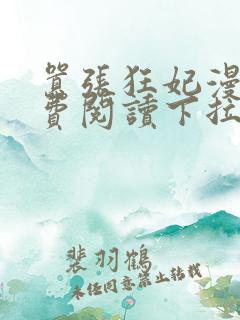 囂张狂妃漫
費閱讀下拉
裴羽鶴
未任同意禁止转载